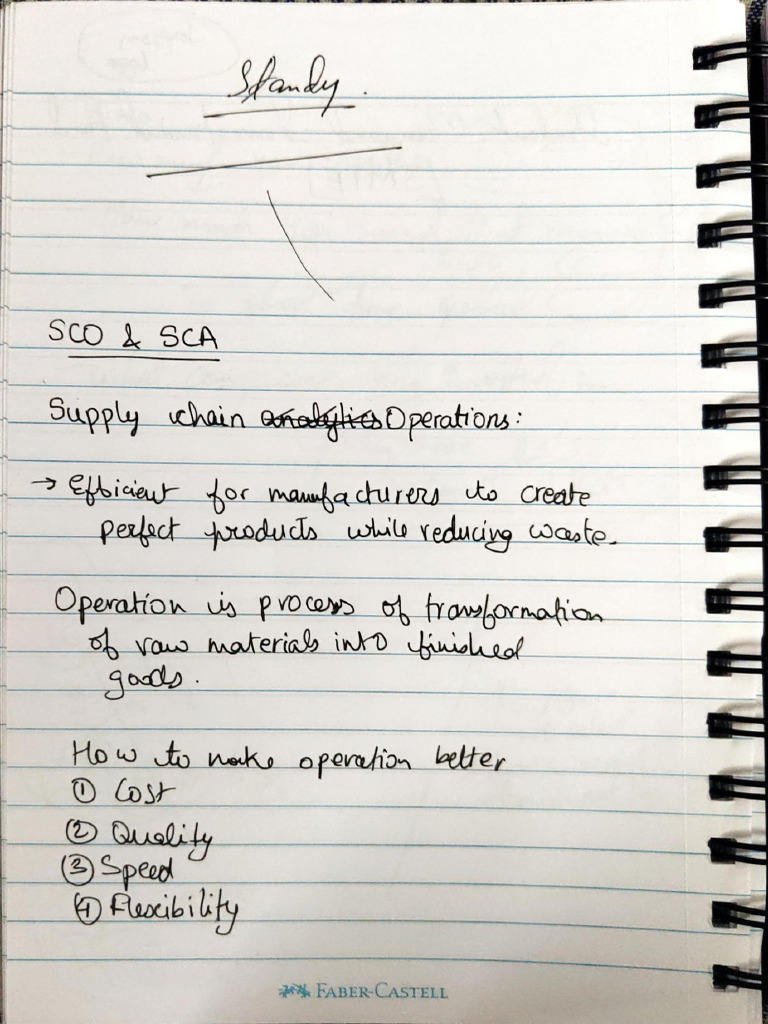 Standy.
SCO & SCA
Supply chain analytics Operations:
→ Efficient for manufacturers to create
perfect products while reducing waste.
Operation is process of transformation
of raw materials into finished
goods.
How to make operation better
① Cost
② Quality
③ Speed
④ Flexibility
FABER-CASTELL